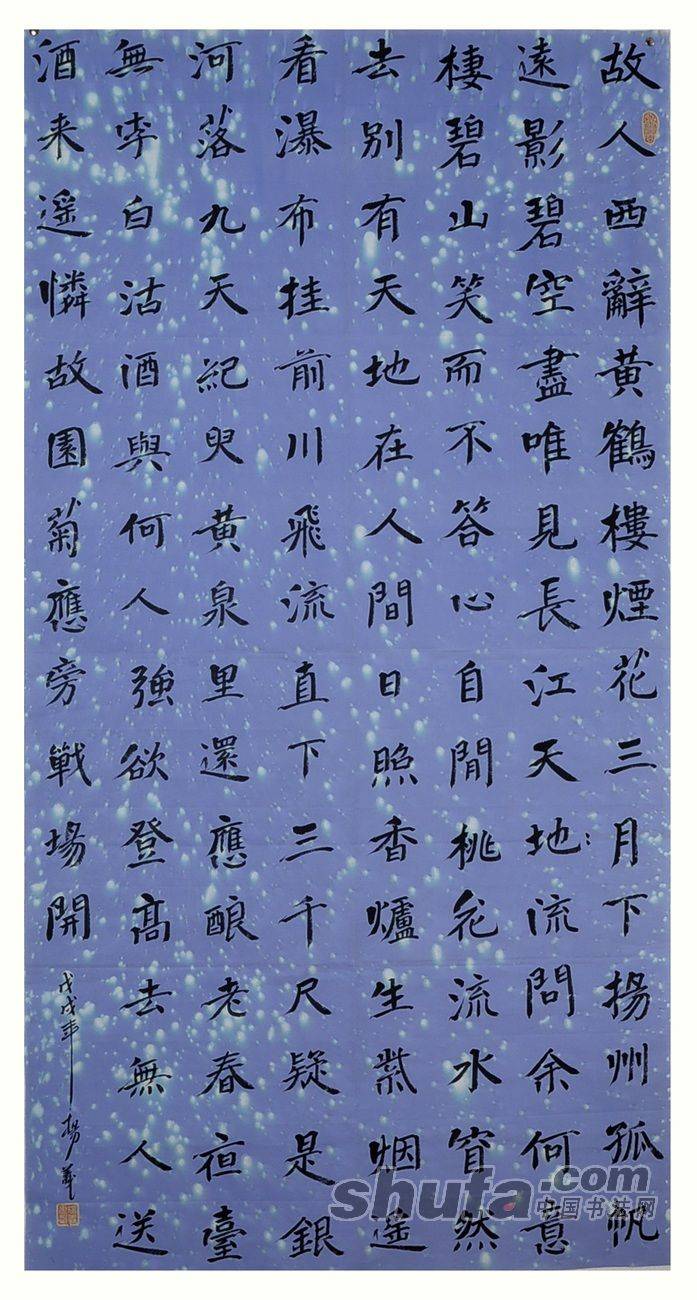 故人西辭黄鶴樓煙花三月下揚州孤帆
遠影碧空盡唯見長江天地:流問余何意
棲碧山笑而不答心自閒桃花流水窅然
去別有天地在人間日照香爐生紫烟遥
看瀑布挂前川飛流直下三千尺疑是銀
河落九天紀叟黄泉里還應酿老春夜臺
無李白沽酒與何人強欲登高去無人送
酒来遥憐故園菊應旁戰場開
戊戌年楊
shufa.com
中国书法网